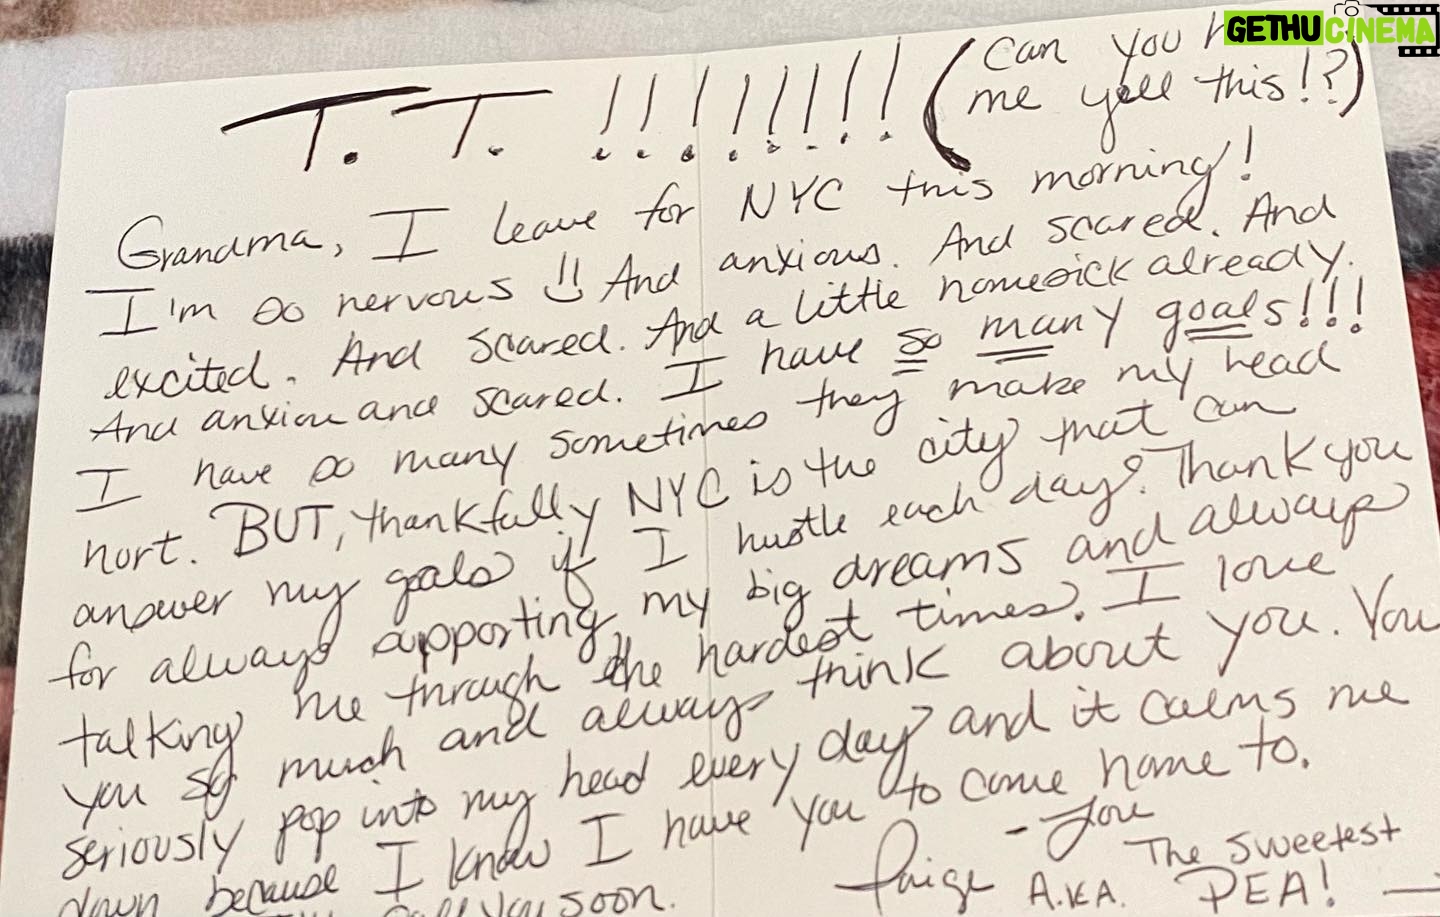 GETHUCINEMA
T.T. !!!!!!!! (can you
me yell this!?)
Grandma, I leave for NYC this morning!
I'm so nervous !! And anxious. And scared. And
excited. And scared. And a little homesick already.
And anxiou and scared. I have so many goals!!!
I have so many sometimes they make my head
hurt. BUT, thankfully NYC is the city that can
answer my goals if I hustle each day. Thank you
for always supporting my big dreams and always
talking me through the hardest times. I love
you so much and always think about you. You
seriously pop into my head every day and it calms me
down because I know I have you to come home to.
Call you soon. - Love
Paige A.K.A. The Sweetest
PEA!